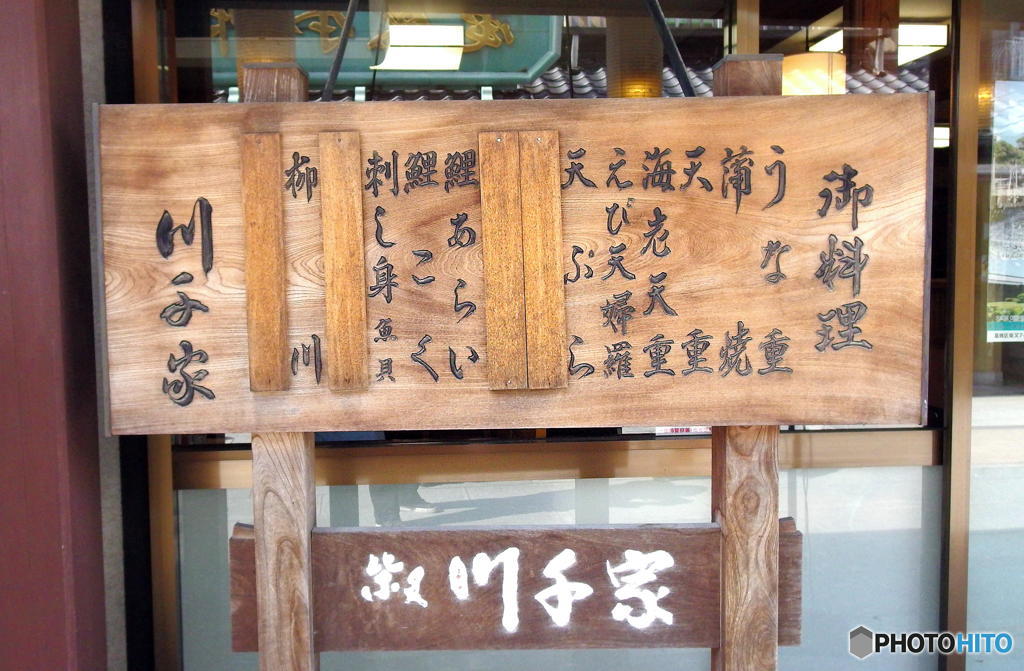 御料理
うな重
蒲焼
天重
海老天重
えび天婦羅
天ぷら
鯉あらい
鯉こく
刺し身魚貝
柳川
川千家
柴又 川千家
PHOTOHITO